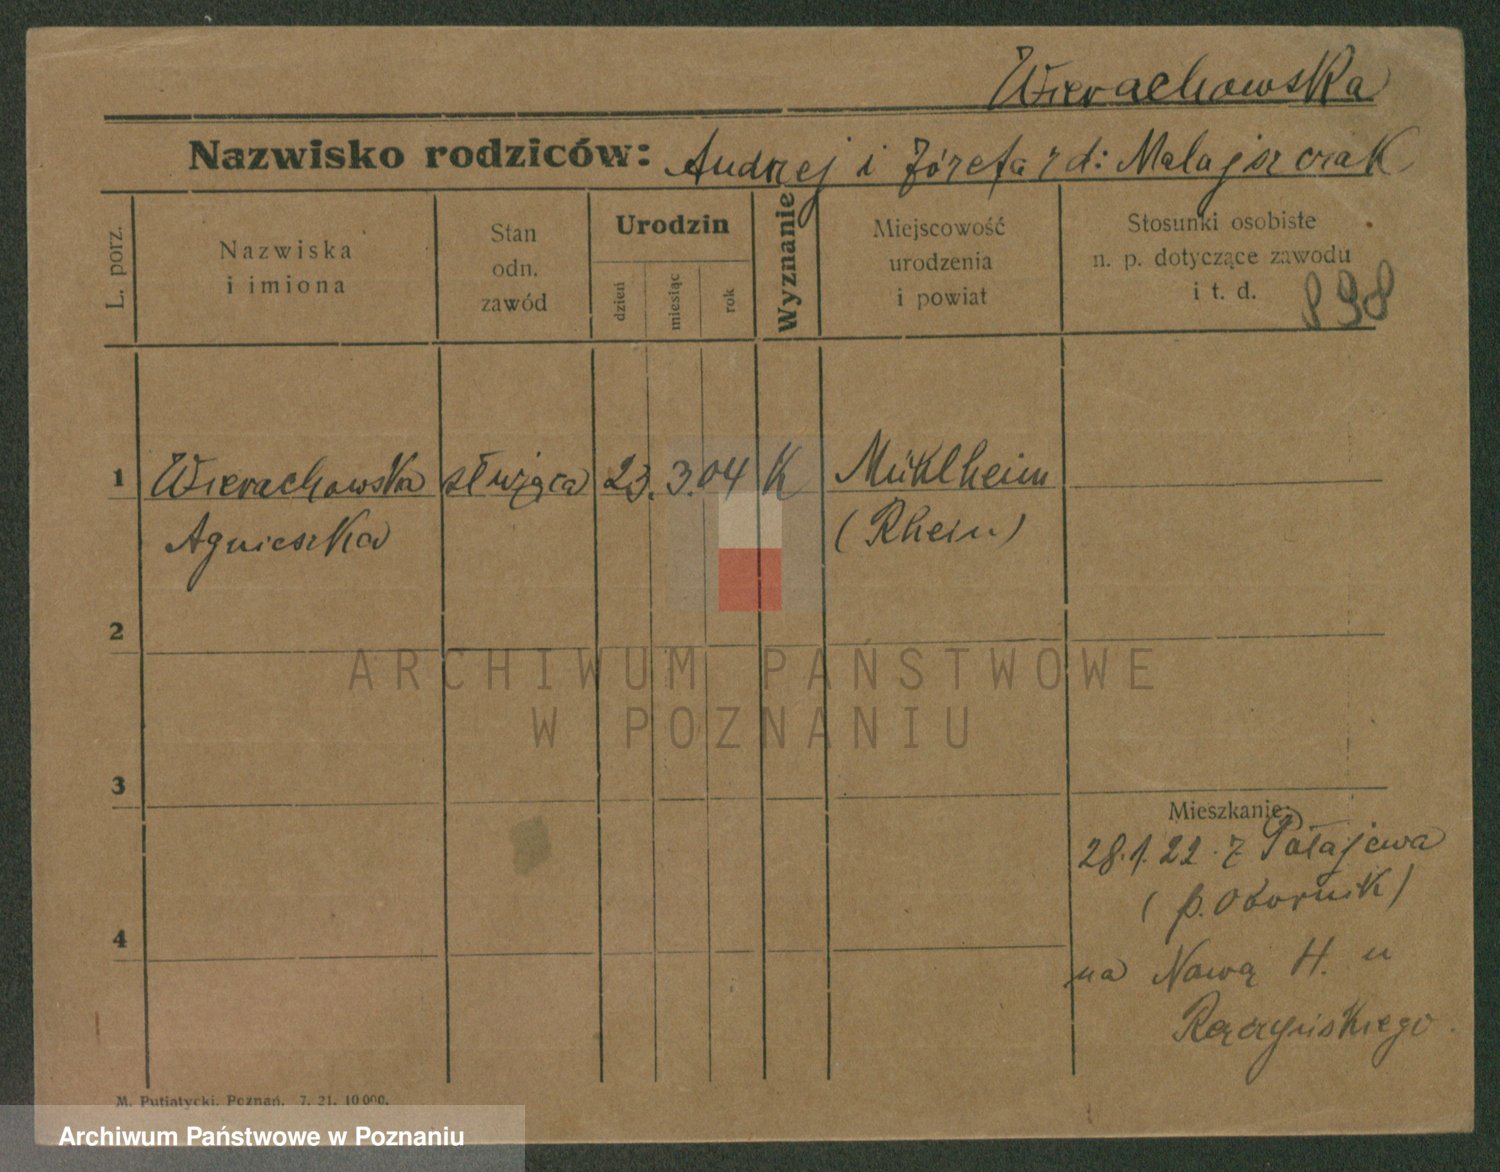 Wierachowska
Nazwisko rodziców: Andrzej i Józefa r d: Malajszczak
L. porz.
Nazwiska
i imiona
Stan
odn.
zawód
Urodzin
dzień
miesiąc
rok
Wyznanie
Miejscowość
urodzenia
i powiat
Stosunki osobiste
n. p. dotyczące zawodu
i t. d.
898
1 Wierachowska służąca 23. 3. 04 K Müklheim
Agnieszka (Rhein)
2
3
Mieszkanie:
28.1.22. z Połajewa
(p. Obornik)
4
na Nową H. u
Raczyńskiego.
M. Putiatycki, Poznań. 7. 21. 10 000.
ARCHIWUM PAŃSTWOWE
W POZNANIU
Archiwum Państwowe w Poznaniu